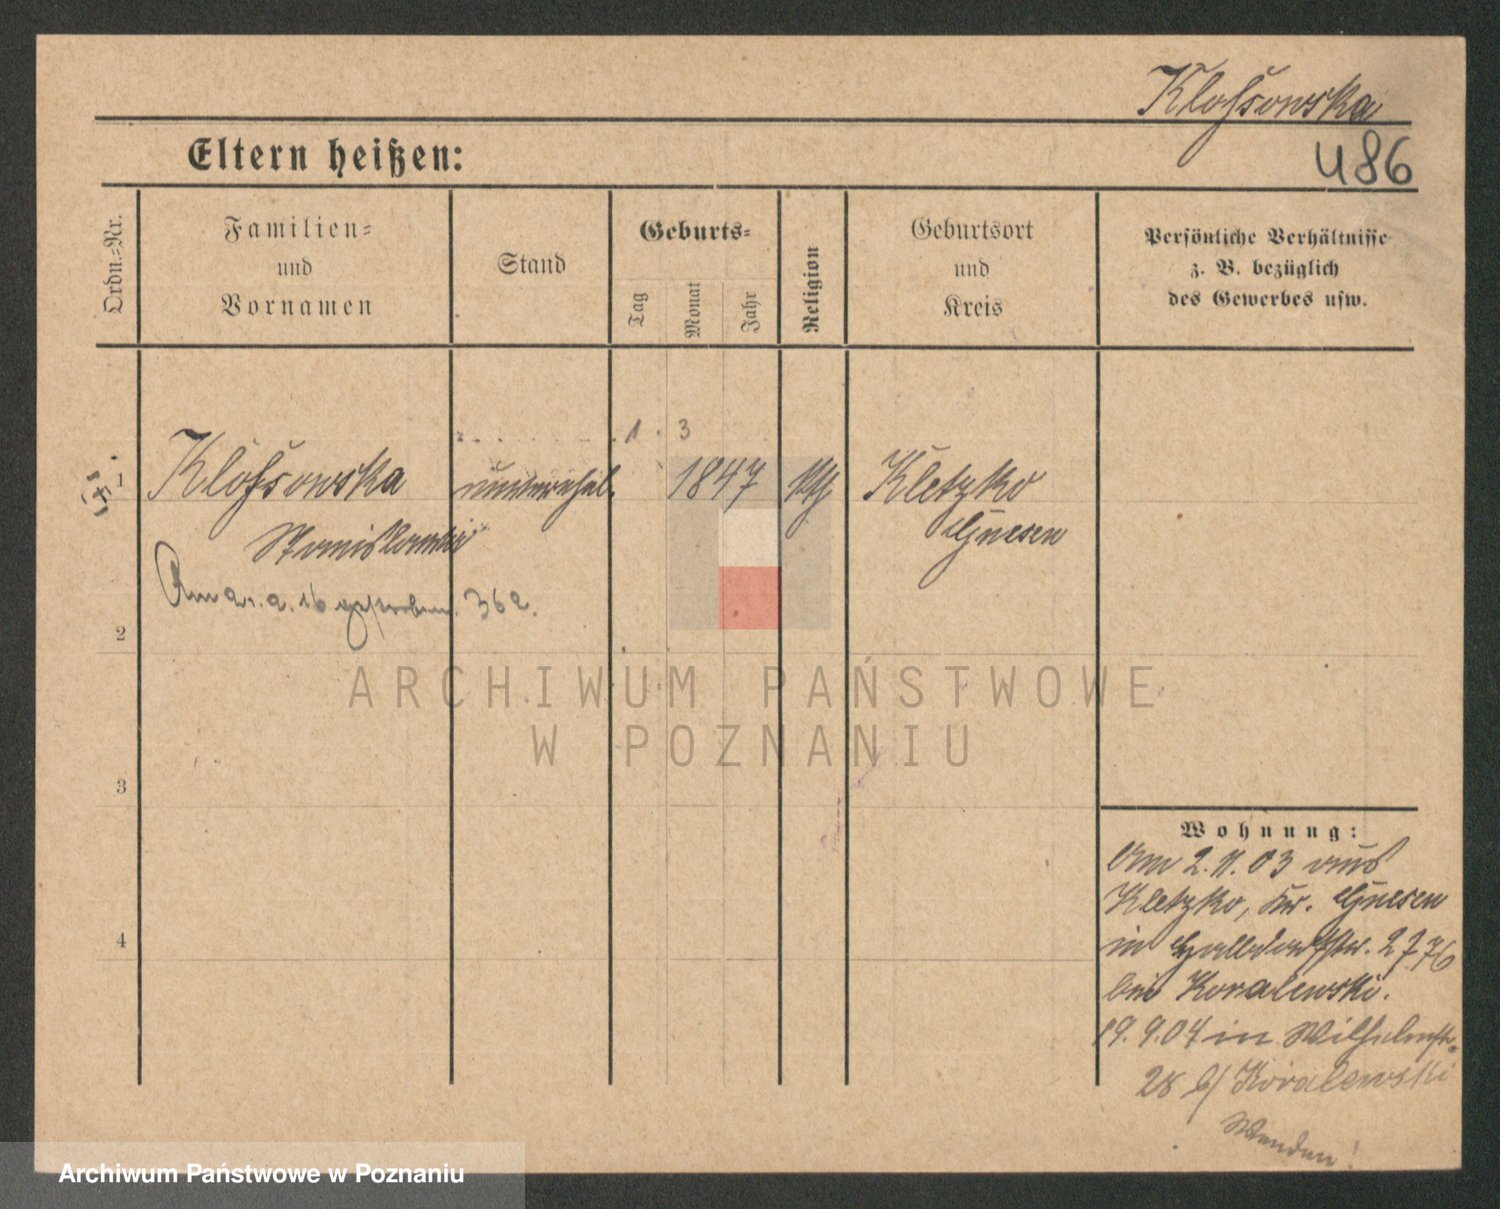 Klofsowska
U86
Eltern heißen:
Ordn.=Nr.
Familien=
und
Vornamen
Stand
Geburts=
Tag
Monat
Jahr
Religion
Geburtsort
und
Kreis
Persönliche Verhältnisse
z. B. bezüglich
des Gewerbes usw.
1. 3
1
Klofsowska
unverehel.
1847
Kletzko
Stanislawa
Gnesen
Am 21. 2. 16 gestorben. 362.
2
3
4
Wohnung:
Am 2. 11. 03 aus
Kletzko, Kr. Gnesen
in
bei Koralewski.
19. 9. 04 in Wilhelmstr.
28 b/ Koralewski
Wenden!
ARCHIWUM PAŃSTWOWE
W POZNANIU
Archiwum Państwowe w Poznaniu